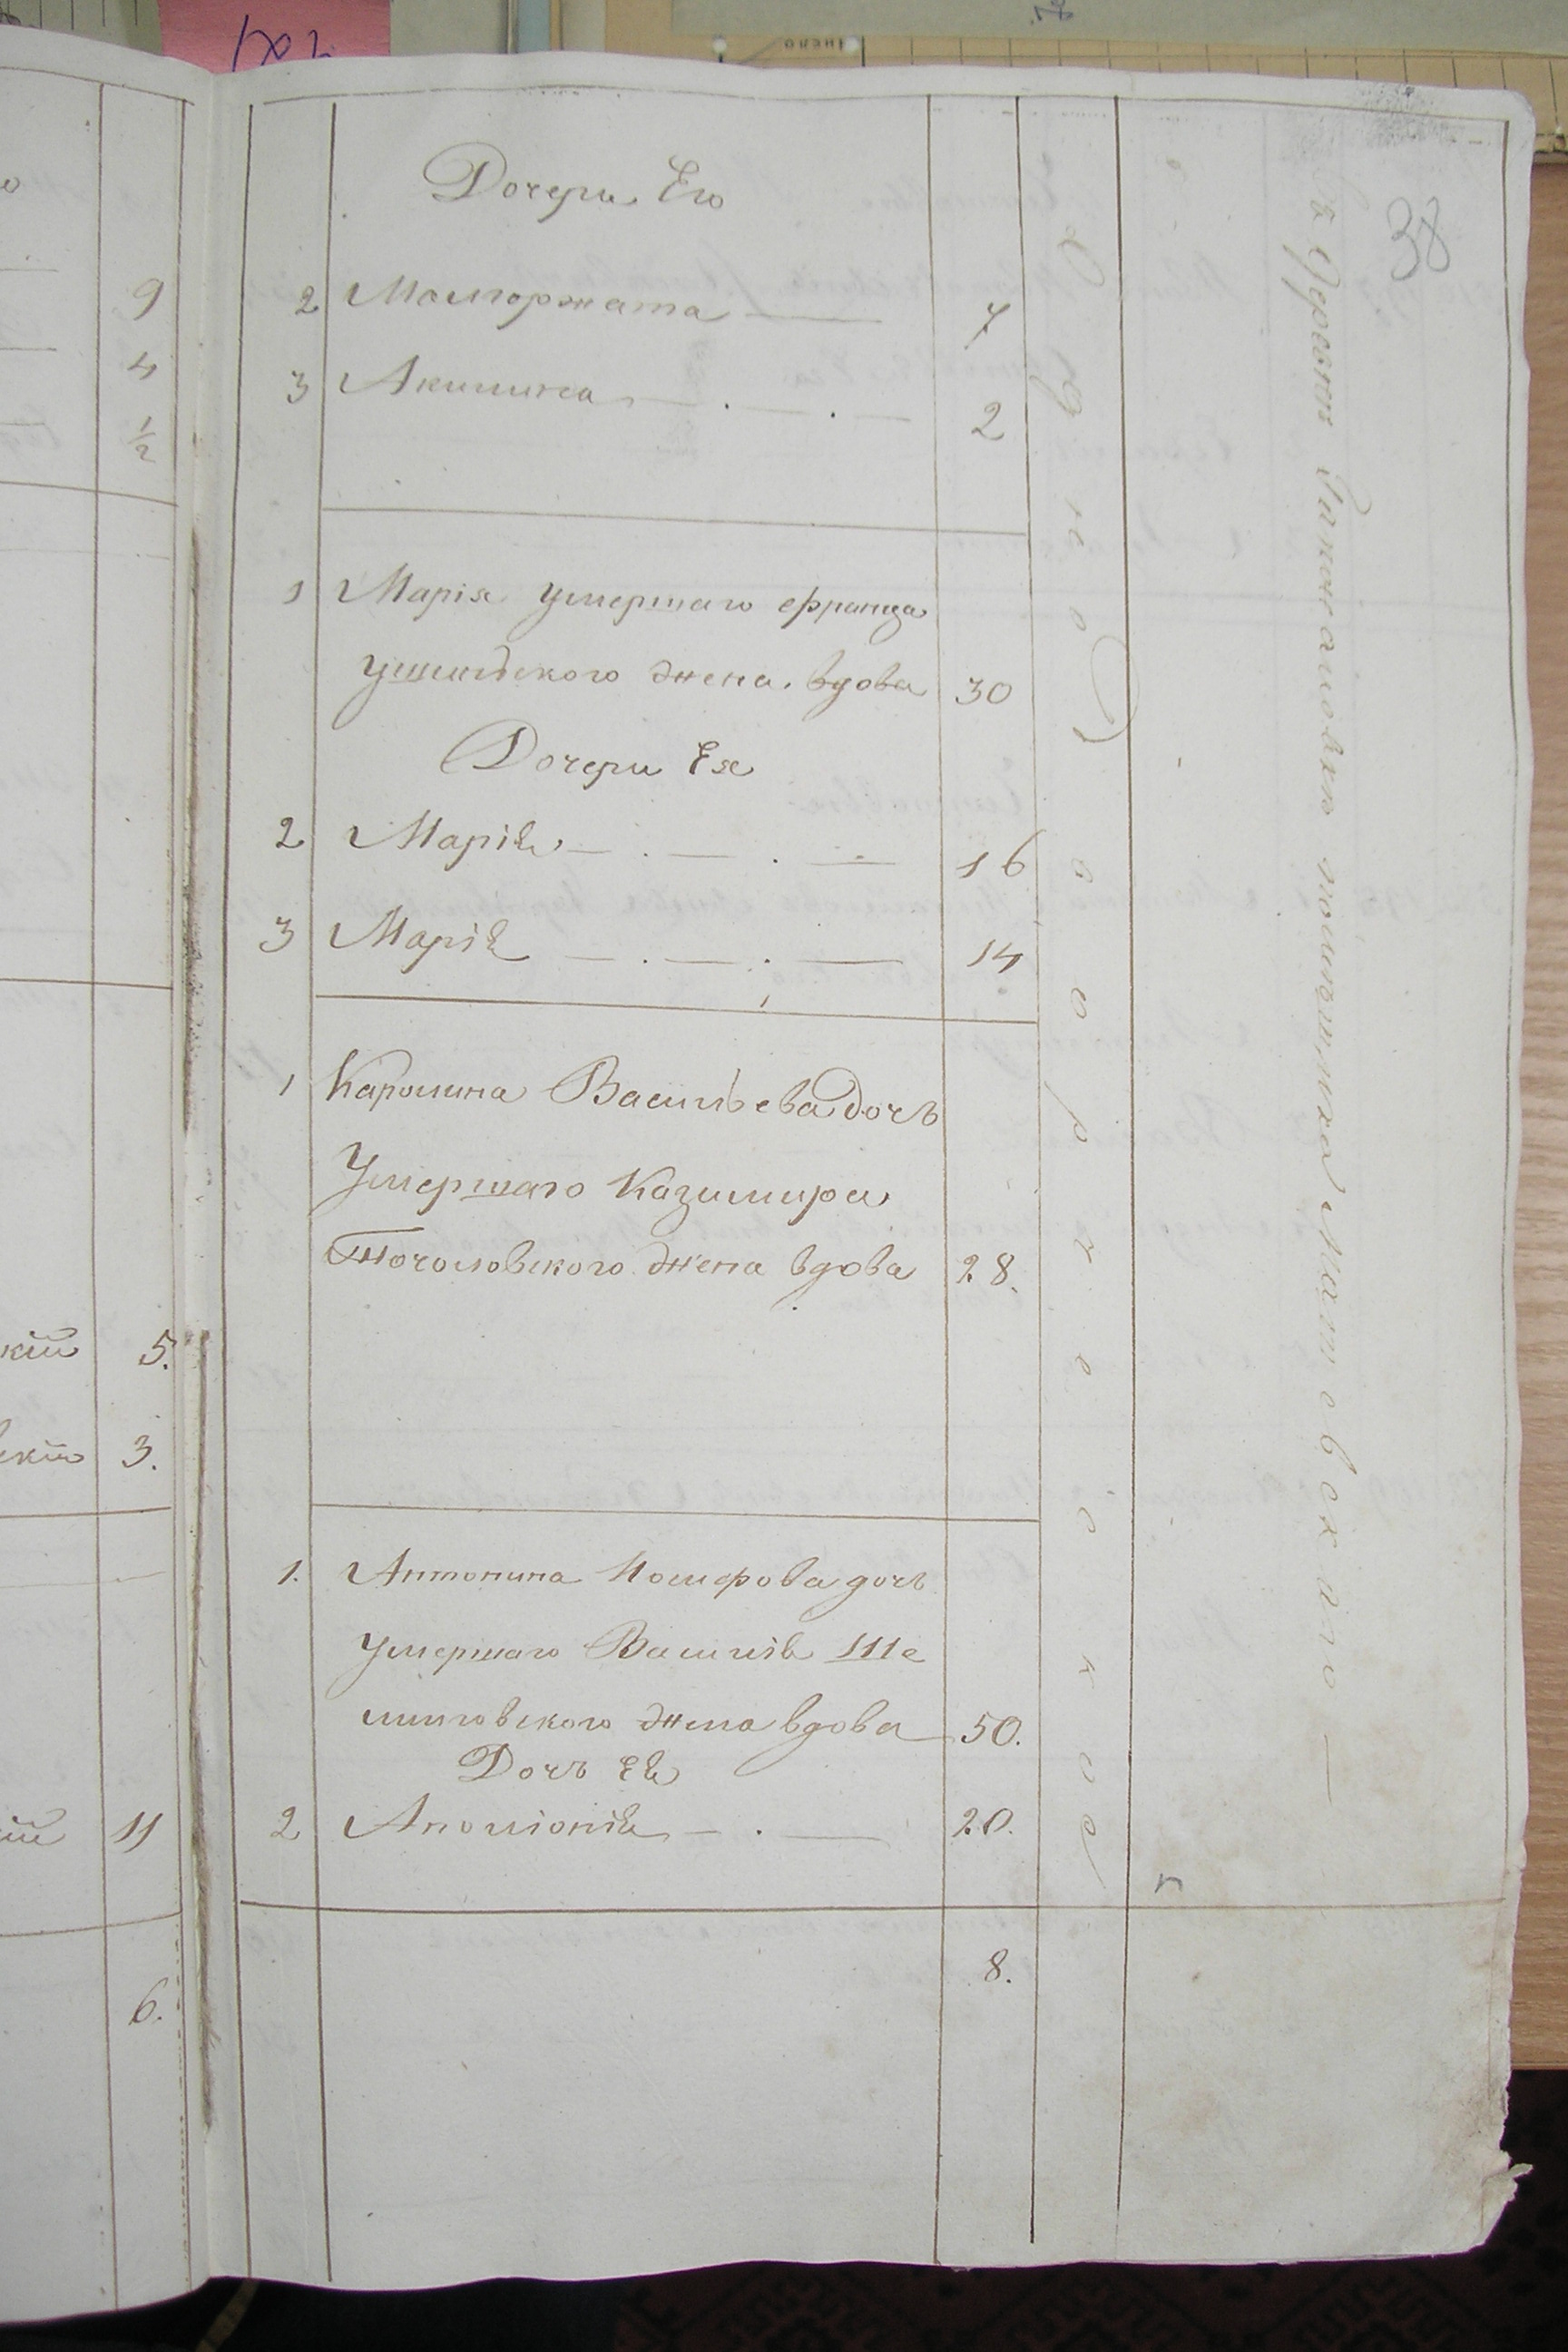 38
Дочери Его
2 Малгоржата 7
3 Акилина 2
1 Марія умершаго Франца
жена вдова 30
Дочери Ея
2 Марія 16
3 Марія 14
1 Каролина Васильева дочь
Умершаго Казимира
жена вдова 28.
1. Антонина Іосифова дочь
умершаго Василія Ше
жена вдова 50.
Дочь Ея
2 Аполіонія 20.
8.
Однодворческой
въ Деревни помѣщика
9
4
1/2
кій 5.
скій 3.
ій 11
6.